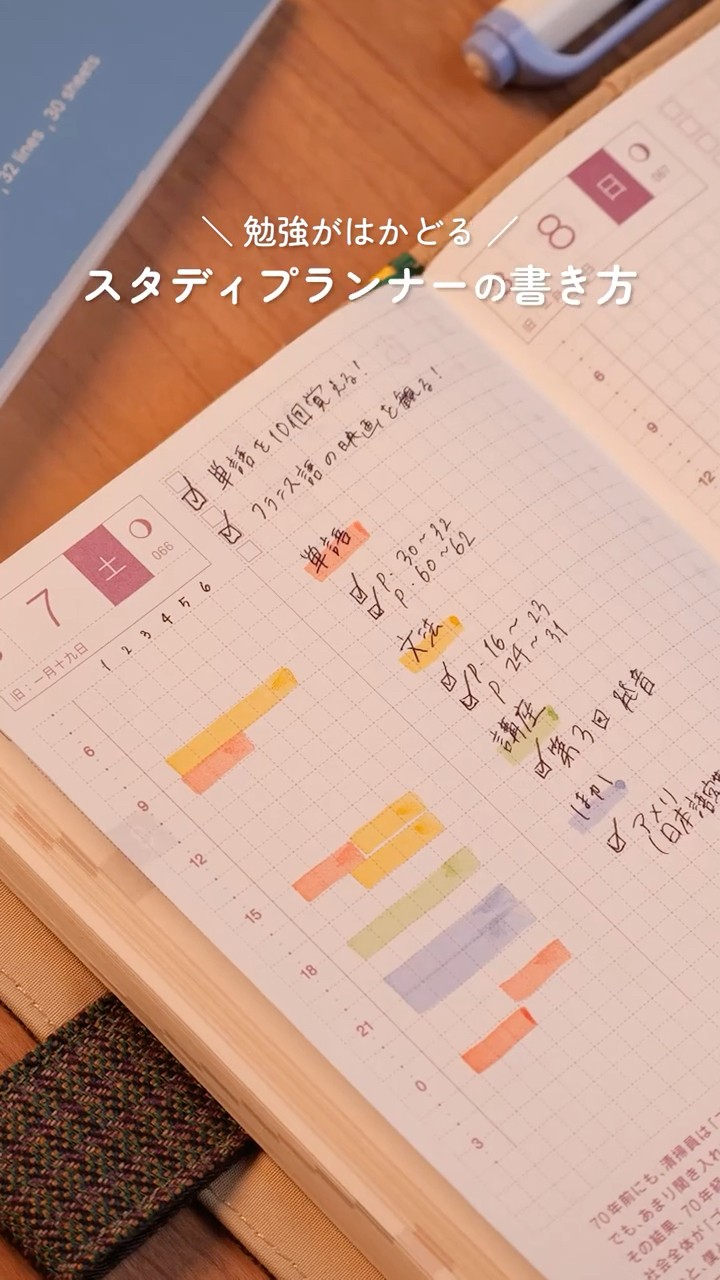 , 32 lines , 30 sheets
＼ 勉強がはかどる ／
スタディプランナーの書き方
8
日
067
6
9
12
単語を10個覚える!
フランス語の映画を観る!
7
土
066
旧:一月十九日
1 2 3 4 5 6
単語
p. 30~32
p. 60~62
文法
p. 16~23
p. 24~31
講座
第3回 発音
ほか
アメリ
(日本語
6
9
12
15
18
21
0
3
70年前にも、清掃員は「
でも、あまり聞き入れ
その結果、70年
社会全体が「
と、僕